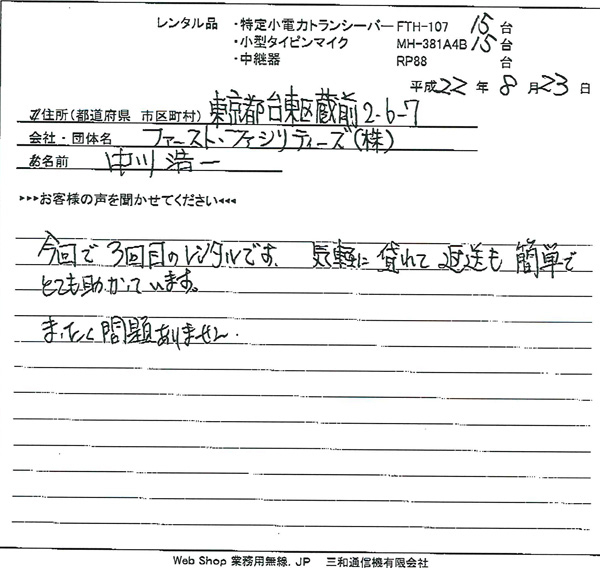 レンタル品 ・特定小電力トランシーバー FTH-107 15 台
・小型タイピンマイク MH-381A4B 15 台
・中継器 RP88 台
平成 22 年 8 月 23 日
ご住所(都道府県 市区町村) 東京都台東区蔵前2-6-7
会社・団体名 ファースト・ファシリティーズ(株)
お名前 中川 浩一
▸▸▸お客様の声を聞かせてください◂◂◂
今回で3回目のレンタルです。気軽に借れて返送も簡単で
とても助かっています。
まったく問題ありません.
Web Shop 業務用無線.JP 三和通信機有限会社